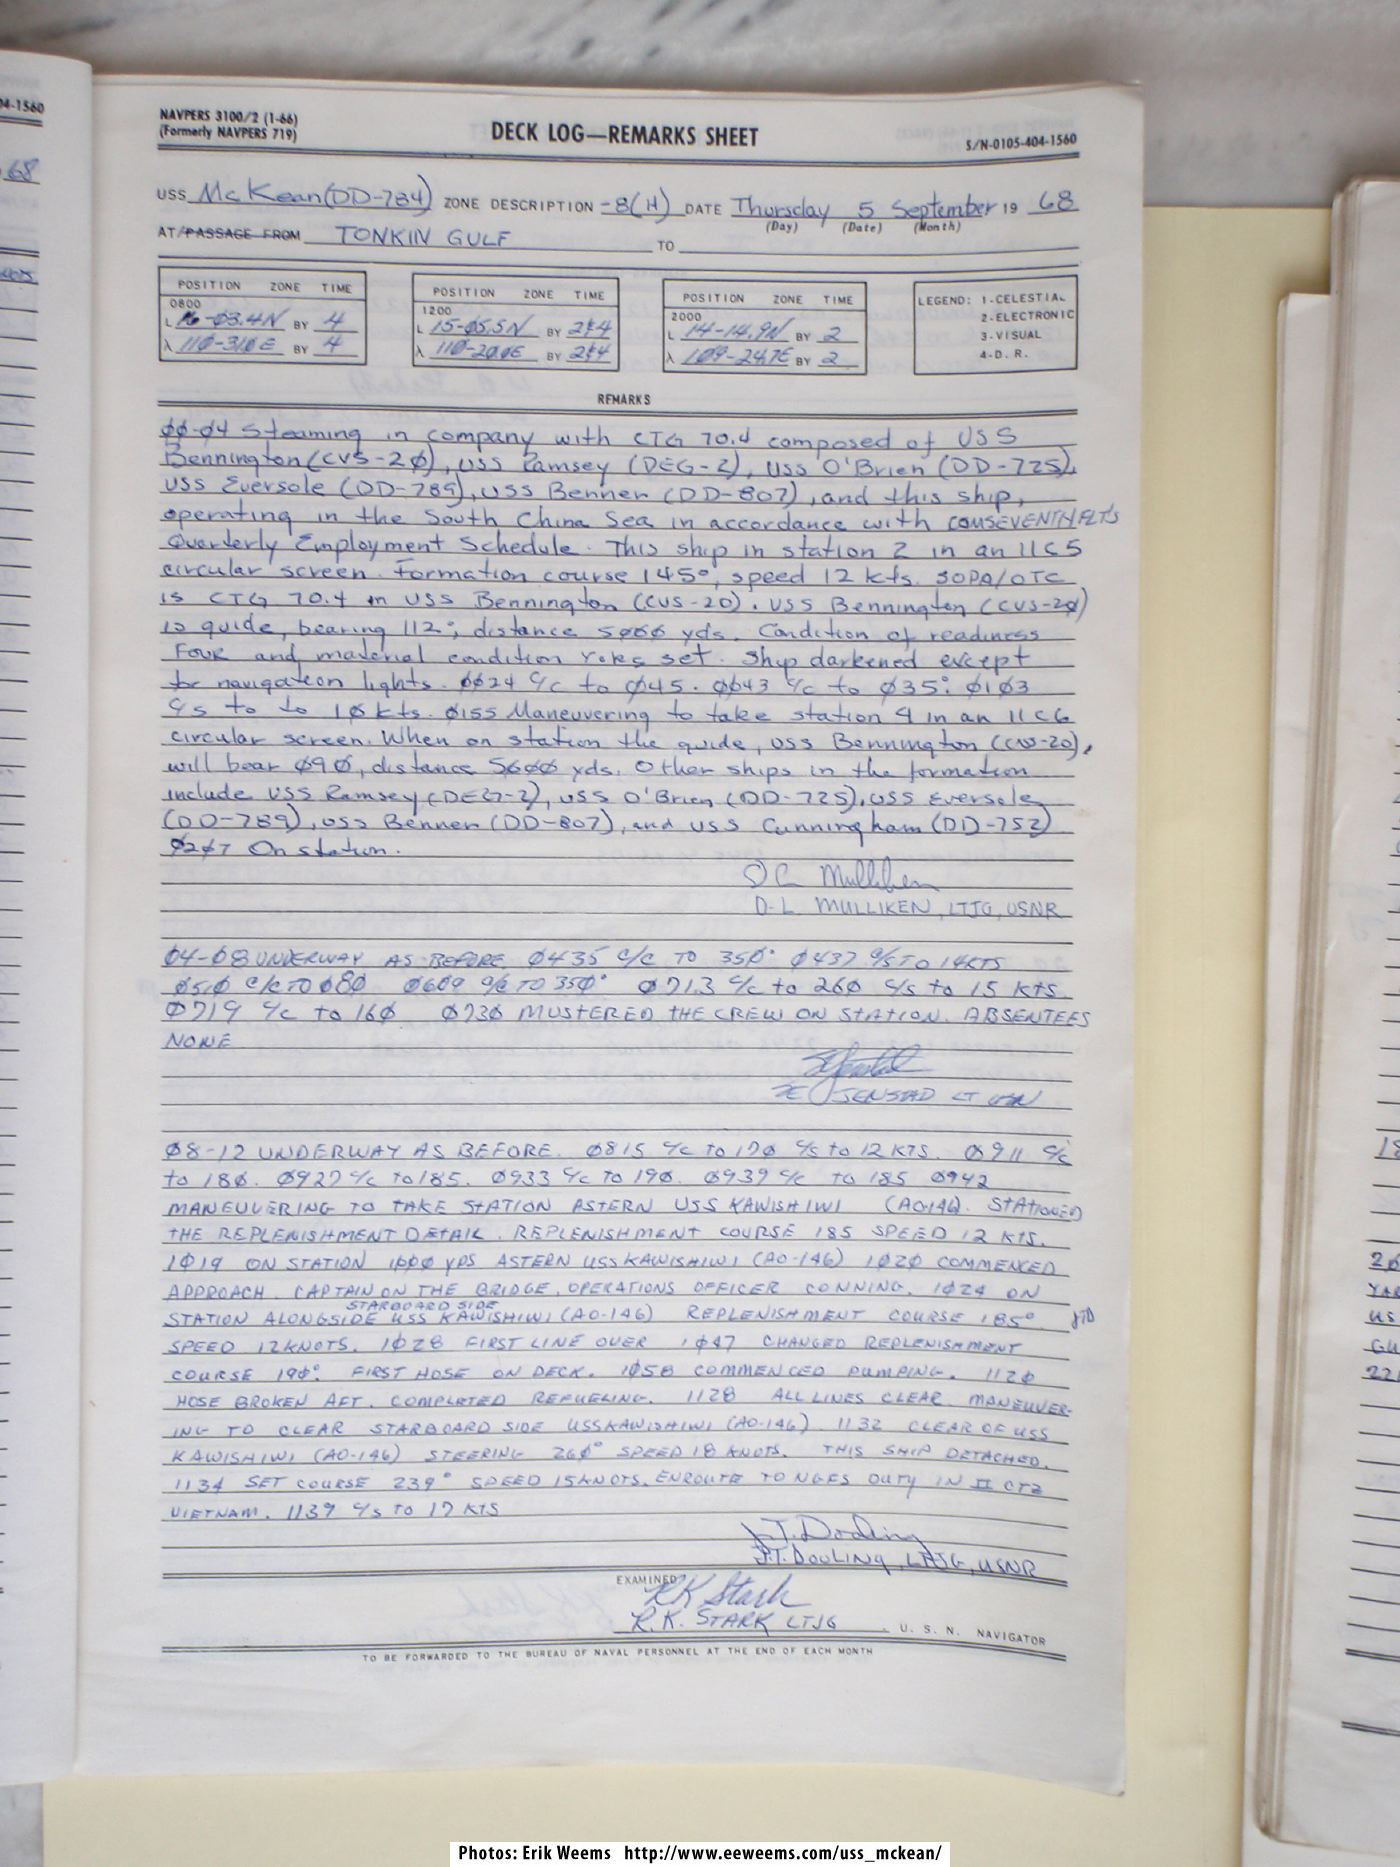 04-1560
68
NAVPERS 3100/2 (1-66)
(Formerly NAVPERS 719)
DECK LOG—REMARKS SHEET
S/N-0105-404-1560
USS McKean (DD-784) ZONE DESCRIPTION -8(H) DATE Thursday 5 September 19 68
(Day) (Date) (Month)
AT/PASSAGE FROM TONKIN GULF TO
POSITION ZONE TIME
0800
L 16-03.4N BY 4
λ 110-31.0E BY 4
POSITION ZONE TIME
1200
L 15-05.5N BY 2&4
λ 110-20.0E BY 2&4
POSITION ZONE TIME
2000
L 14-14.9N BY 2
λ 109-24.7E BY 2
LEGEND: 1-CELESTIAL
2-ELECTRONIC
3-VISUAL
4-D. R.
REMARKS
ØØ-Ø4 Steaming in company with CTG 70.4 composed of USS
Bennington (CVS-2Ø), USS Ramsey (DEG-2), USS O'Brien (DD-725),
USS Eversole (DD-789), USS Benner (DD-807), and this ship,
operating in the South China Sea in accordance with COMSEVENTHFLT'S
Quarterly Employment Schedule. This ship in station 2 in an 11C5
circular screen. Formation course 145°, speed 12 kts. SOPA/OTC
is CTG 70.4 in USS Bennington (CVS-20). USS Bennington (CVS-2Ø)
is guide, bearing 112°, distance 5ØØØ yds. Condition of readiness
Four and material condition Yoke set. Ship darkened except
for navigation lights. ØØ24 C/C to Ø45. ØØ43 C/C to Ø35°. Ø1Ø3
C/S to to 1Ø kts. Ø155 Maneuvering to take station 4 in an 11C6
circular screen. When on station the guide, USS Bennington (CVS-20),
will bear Ø9Ø, distance 5ØØØ yds. Other ships in the formation
include USS Ramsey (DEG-2), USS O'Brien (DD-725), USS Eversole
(DD-789), USS Benner (DD-807), and USS Cunningham (DD-752)
Ø2Ø7 On station.
D L Mulliken
D. L. MULLIKEN, LTJG, USNR
Ø4-Ø8 UNDERWAY AS BEFORE. Ø435 C/C TO 35Ø° Ø437 C/S TO 14KTS
Ø51Ø C/C TO Ø8Ø Ø6Ø9 C/C TO 35Ø° Ø713 C/C to 26Ø C/S to 15 KTS
Ø719 C/C to 16Ø Ø73Ø MUSTERED THE CREW ON STATION. ABSENTEES
NONE
JENSTAD LT USN
Ø8-12 UNDERWAY AS BEFORE. Ø815 C/C to 17Ø C/S to 12 KTS. Ø911 C/C
to 18Ø. Ø927 C/C to 185. Ø933 C/C to 19Ø. Ø939 C/C to 185 Ø942
MANEUVERING TO TAKE STATION ASTERN USS KAWISHIWI (AO-146). STATIONED
THE REPLENISHMENT DETAIL. REPLENISHMENT COURSE 185 SPEED 12 KTS.
1Ø19 ON STATION 1ØØØ YDS ASTERN USS KAWISHIWI (AO-146) 1Ø2Ø COMMENCED
APPROACH. CAPTAIN ON THE BRIDGE, OPERATIONS OFFICER CONNING. 1Ø24 ON
STARBOARD SIDE
STATION ALONGSIDE USS KAWISHIWI (AO-146) REPLENISHMENT COURSE 185° JTD
SPEED 12 KNOTS. 1Ø28 FIRST LINE OVER 1Ø47 CHANGED REPLENISHMENT
COURSE 19Ø°. FIRST HOSE ON DECK. 1Ø58 COMMENCED PUMPING. 112Ø
HOSE BROKEN AFT. COMPLETED REFUELING. 1128 ALL LINES CLEAR. MANEUVER-
ING TO CLEAR STARBOARD SIDE USS KAWISHIWI (AO-146). 1132 CLEAR OF USS
KAWISHIWI (AO-146) STEERING 26Ø° SPEED 18 KNOTS. THIS SHIP DETACHED.
1134 SET COURSE 239° SPEED 15 KNOTS. ENROUTE TO NGFS DUTY IN II CTZ
VIETNAM. 1139 C/S TO 17 KTS
J.T. Dowling
J.T. DOWLING, LTJG, USNR
EXAMINED
RK Stark
R.K. STARK LTJG U. S. N. NAVIGATOR
TO BE FORWARDED TO THE BUREAU OF NAVAL PERSONNEL AT THE END OF EACH MONTH
Photos: Erik Weems http://www.eeweems.com/uss_mckean/